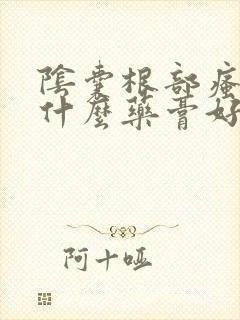 陰囊根部瘙
什麼藥膏好
阿十啞